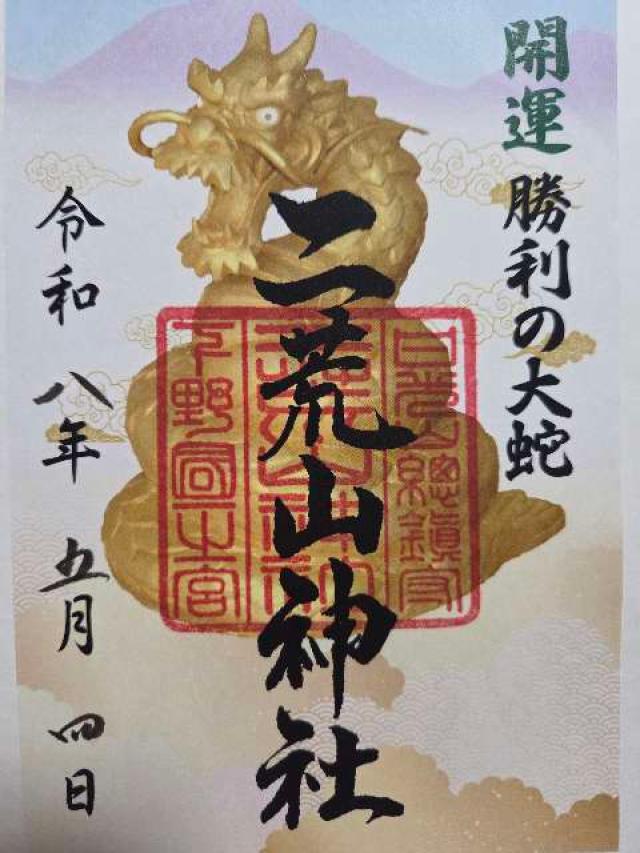 開運 勝利の大蛇
二荒山神社
日光山總鎮守
二荒山神社
下野国一之宮
令和 八年 五月 四日